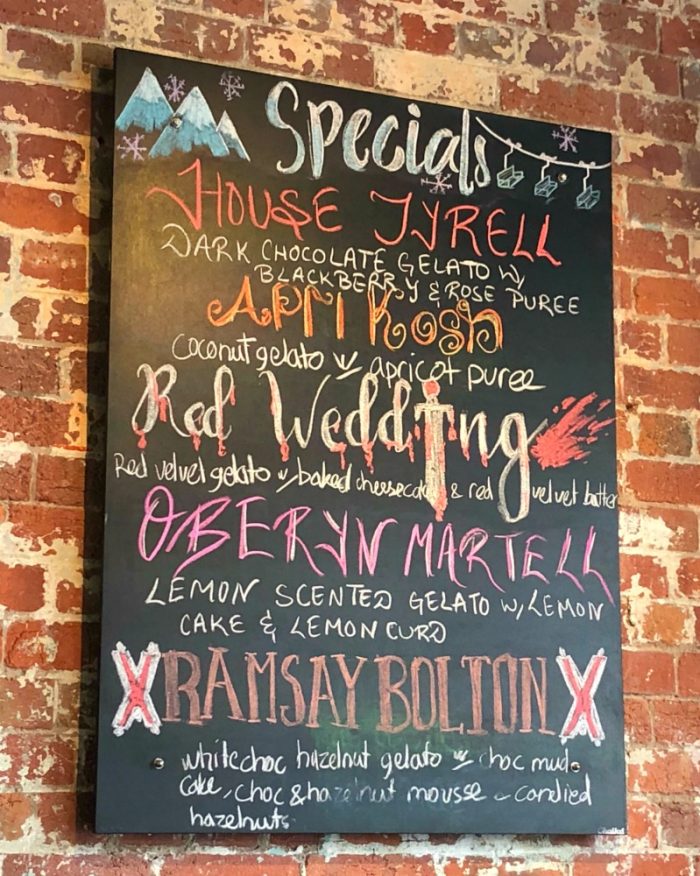 Specials
HOUSE TYRELL
DARK CHOCOLATE GELATO W/
BLACKBERRY & ROSE PUREE
APRI KOSH
coconut gelato w/ apricot puree
Red Wedding
Red velvet gelato w/ baked cheesecake & red velvet batter
OBERYN MARTELL
LEMON SCENTED GELATO W/ LEMON
CAKE & LEMON CURD
X RAMSAY BOLTON X
whitechoc hazelnut gelato w/ choc mud
cake, choc & hazelnut mousse candied
hazelnuts